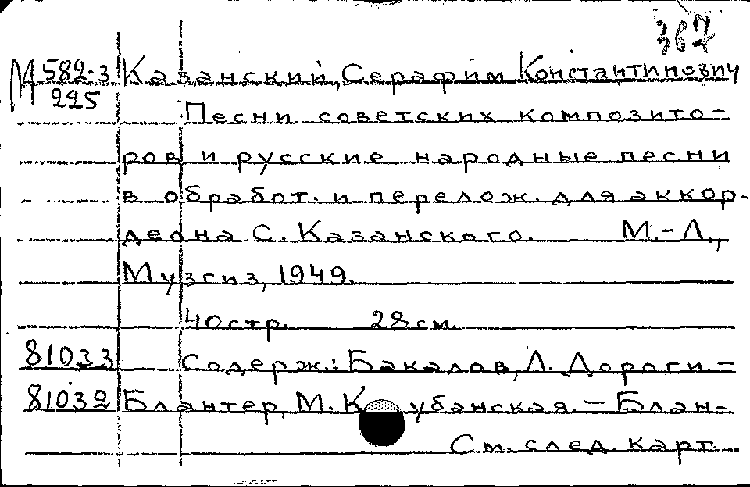 387
М 582-3 Казанский, Серафим Константинович
225
Песни советских композито-
ров и русские народные песни
в обработ. и перелож. для аккор-
деона С. Казанского. М.-Л.,
Музгиз, 1949.
40 стр. 28 см.
81033 Содерж.: Бакалов, Л. Дороги. -
81032 Блантер, М. К убанская. - Блан-
См. след. карт.